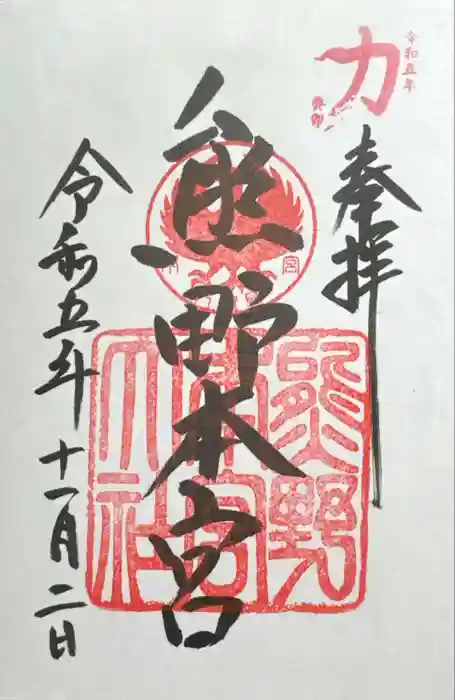 力
令和五年
癸卯
奉拝
熊野本宮
宮
熊野
本宮
大社
令和五年十一月二日